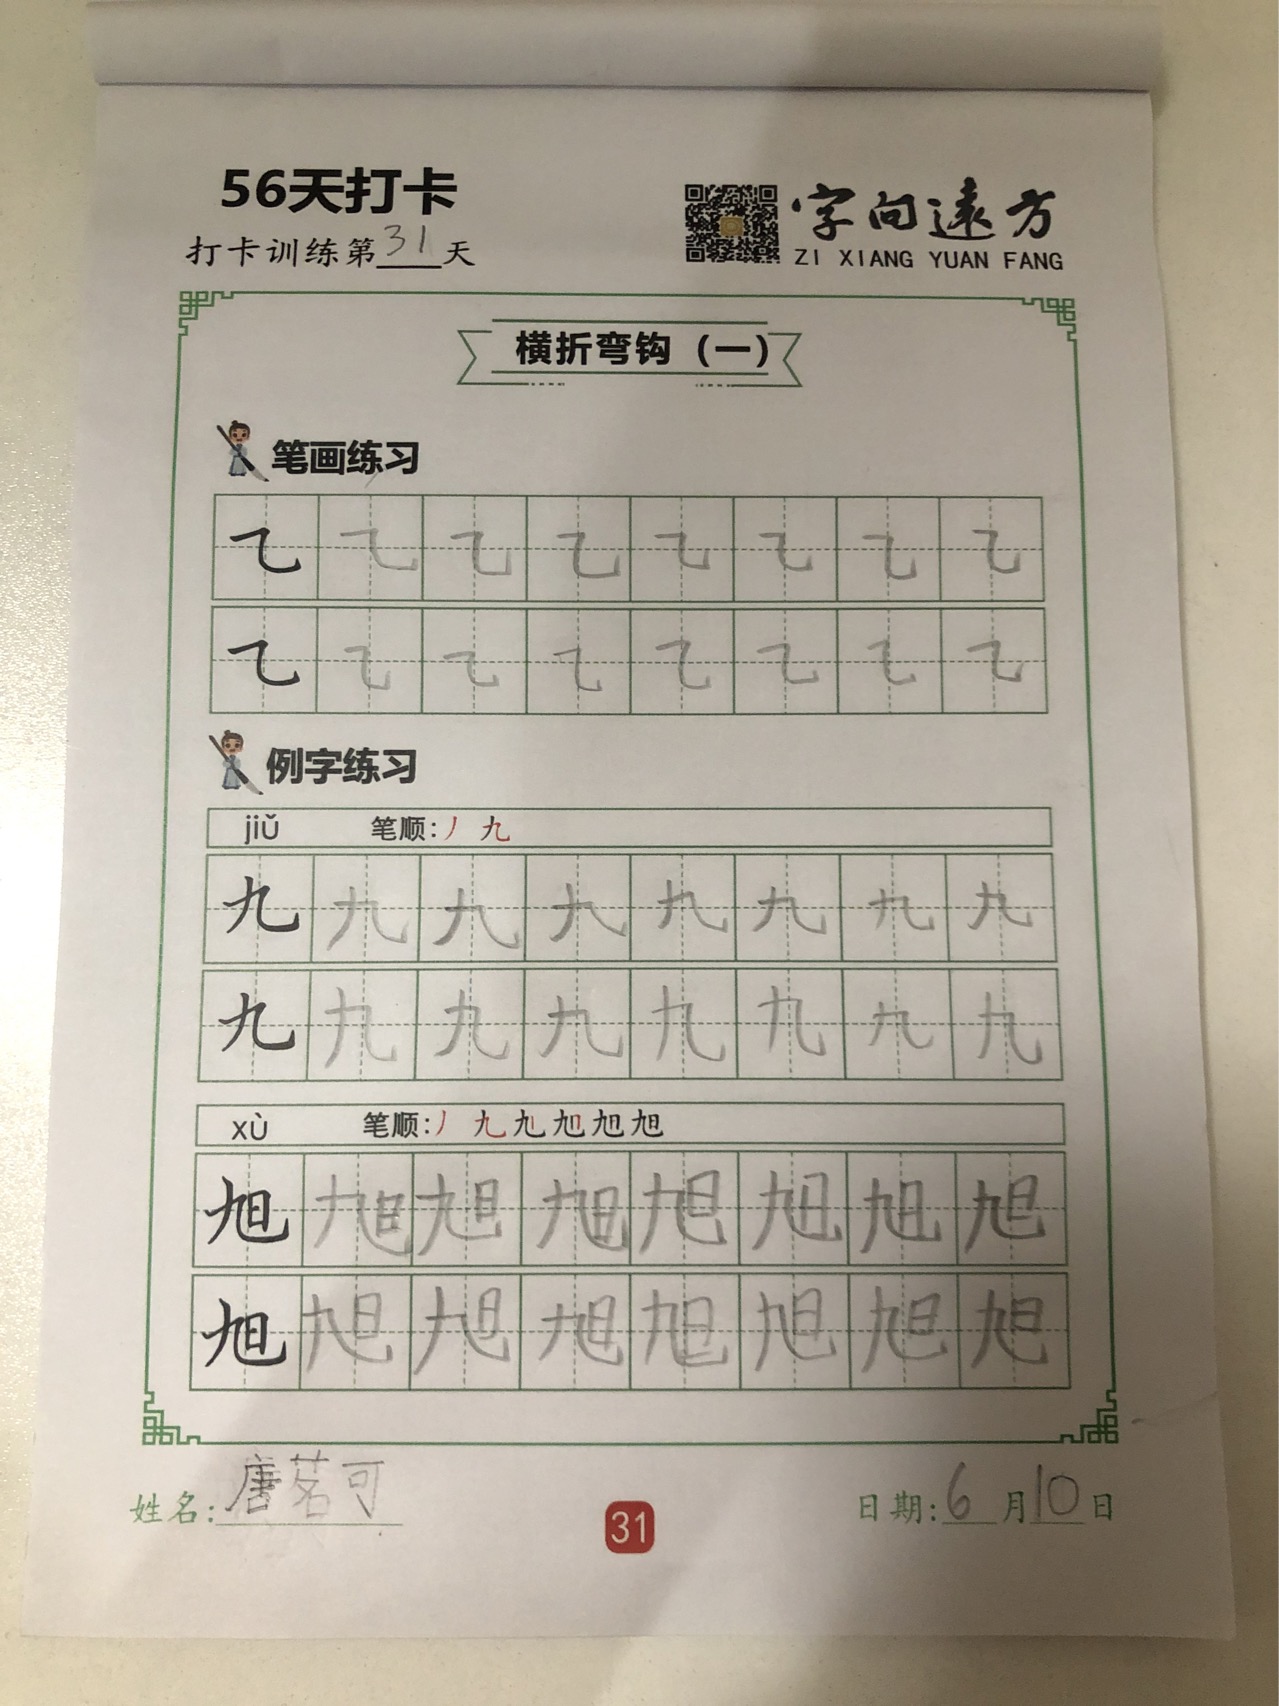 56天打卡
打卡训练第31天
字向遠方
ZI XIANG YUAN FANG
横折弯钩（一）
笔画练习
㇈ ㇈ ㇈ ㇈ ㇈ ㇈ ㇈ ㇈
㇈ ㇈ ㇈ ㇈ ㇈ ㇈ ㇈ ㇈
例字练习
jiǔ 笔顺:丿 九
九 九 九 九 九 九 九 九
九 九 九 九 九 九 九 九
xù 笔顺:丿 九 旭 旭 旭 旭
旭 旭 旭 旭 旭 旭 旭 旭
旭 旭 旭 旭 旭 旭 旭 旭
姓名:唐茗可
31
日期:6月10日